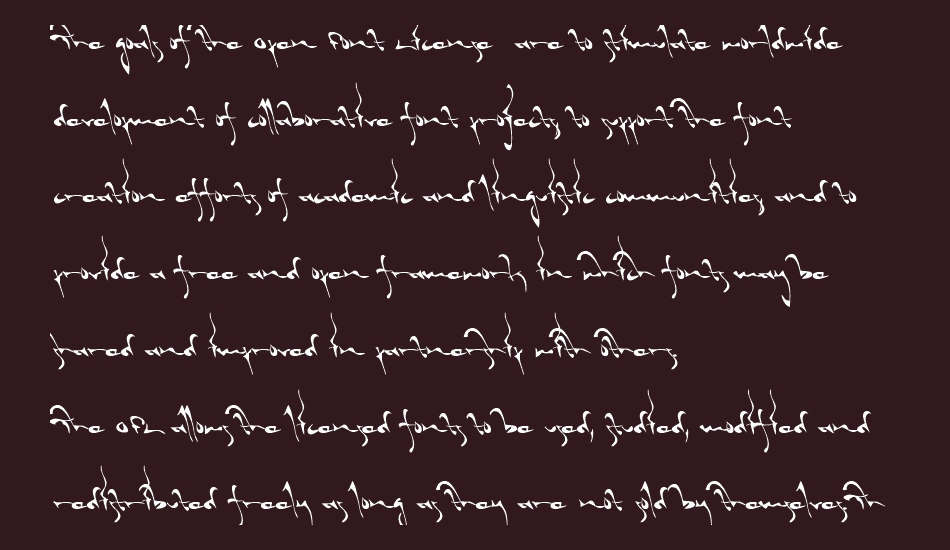 The goals of the Open Font License are to stimulate worldwide
development of collaborative font projects, to support the font
creation efforts of academic and linguistic communities, and to
provide a free and open framework in which fonts may be
shared and improved in partnership with others.
The OFL allows the licensed fonts to be used, studied, modified and
redistributed freely as long as they are not sold by themselves. Th